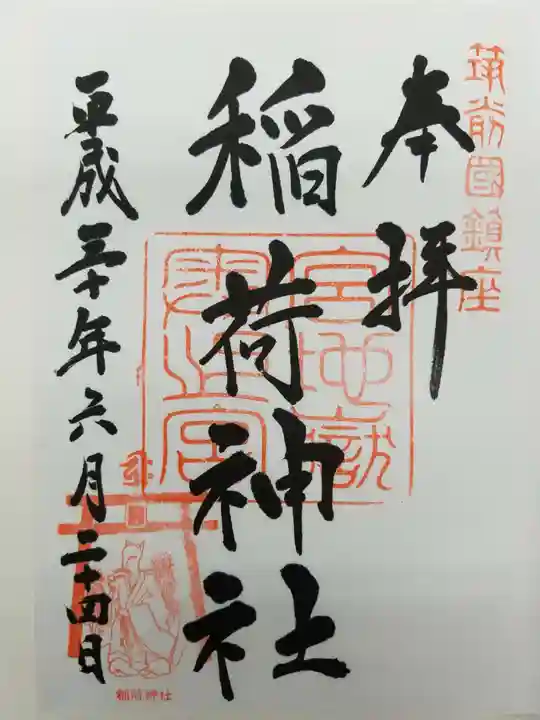 筑前國鎮座
奉拝
稲荷神社
平成三十年六月二十四日
宮地嶽
稲荷神社